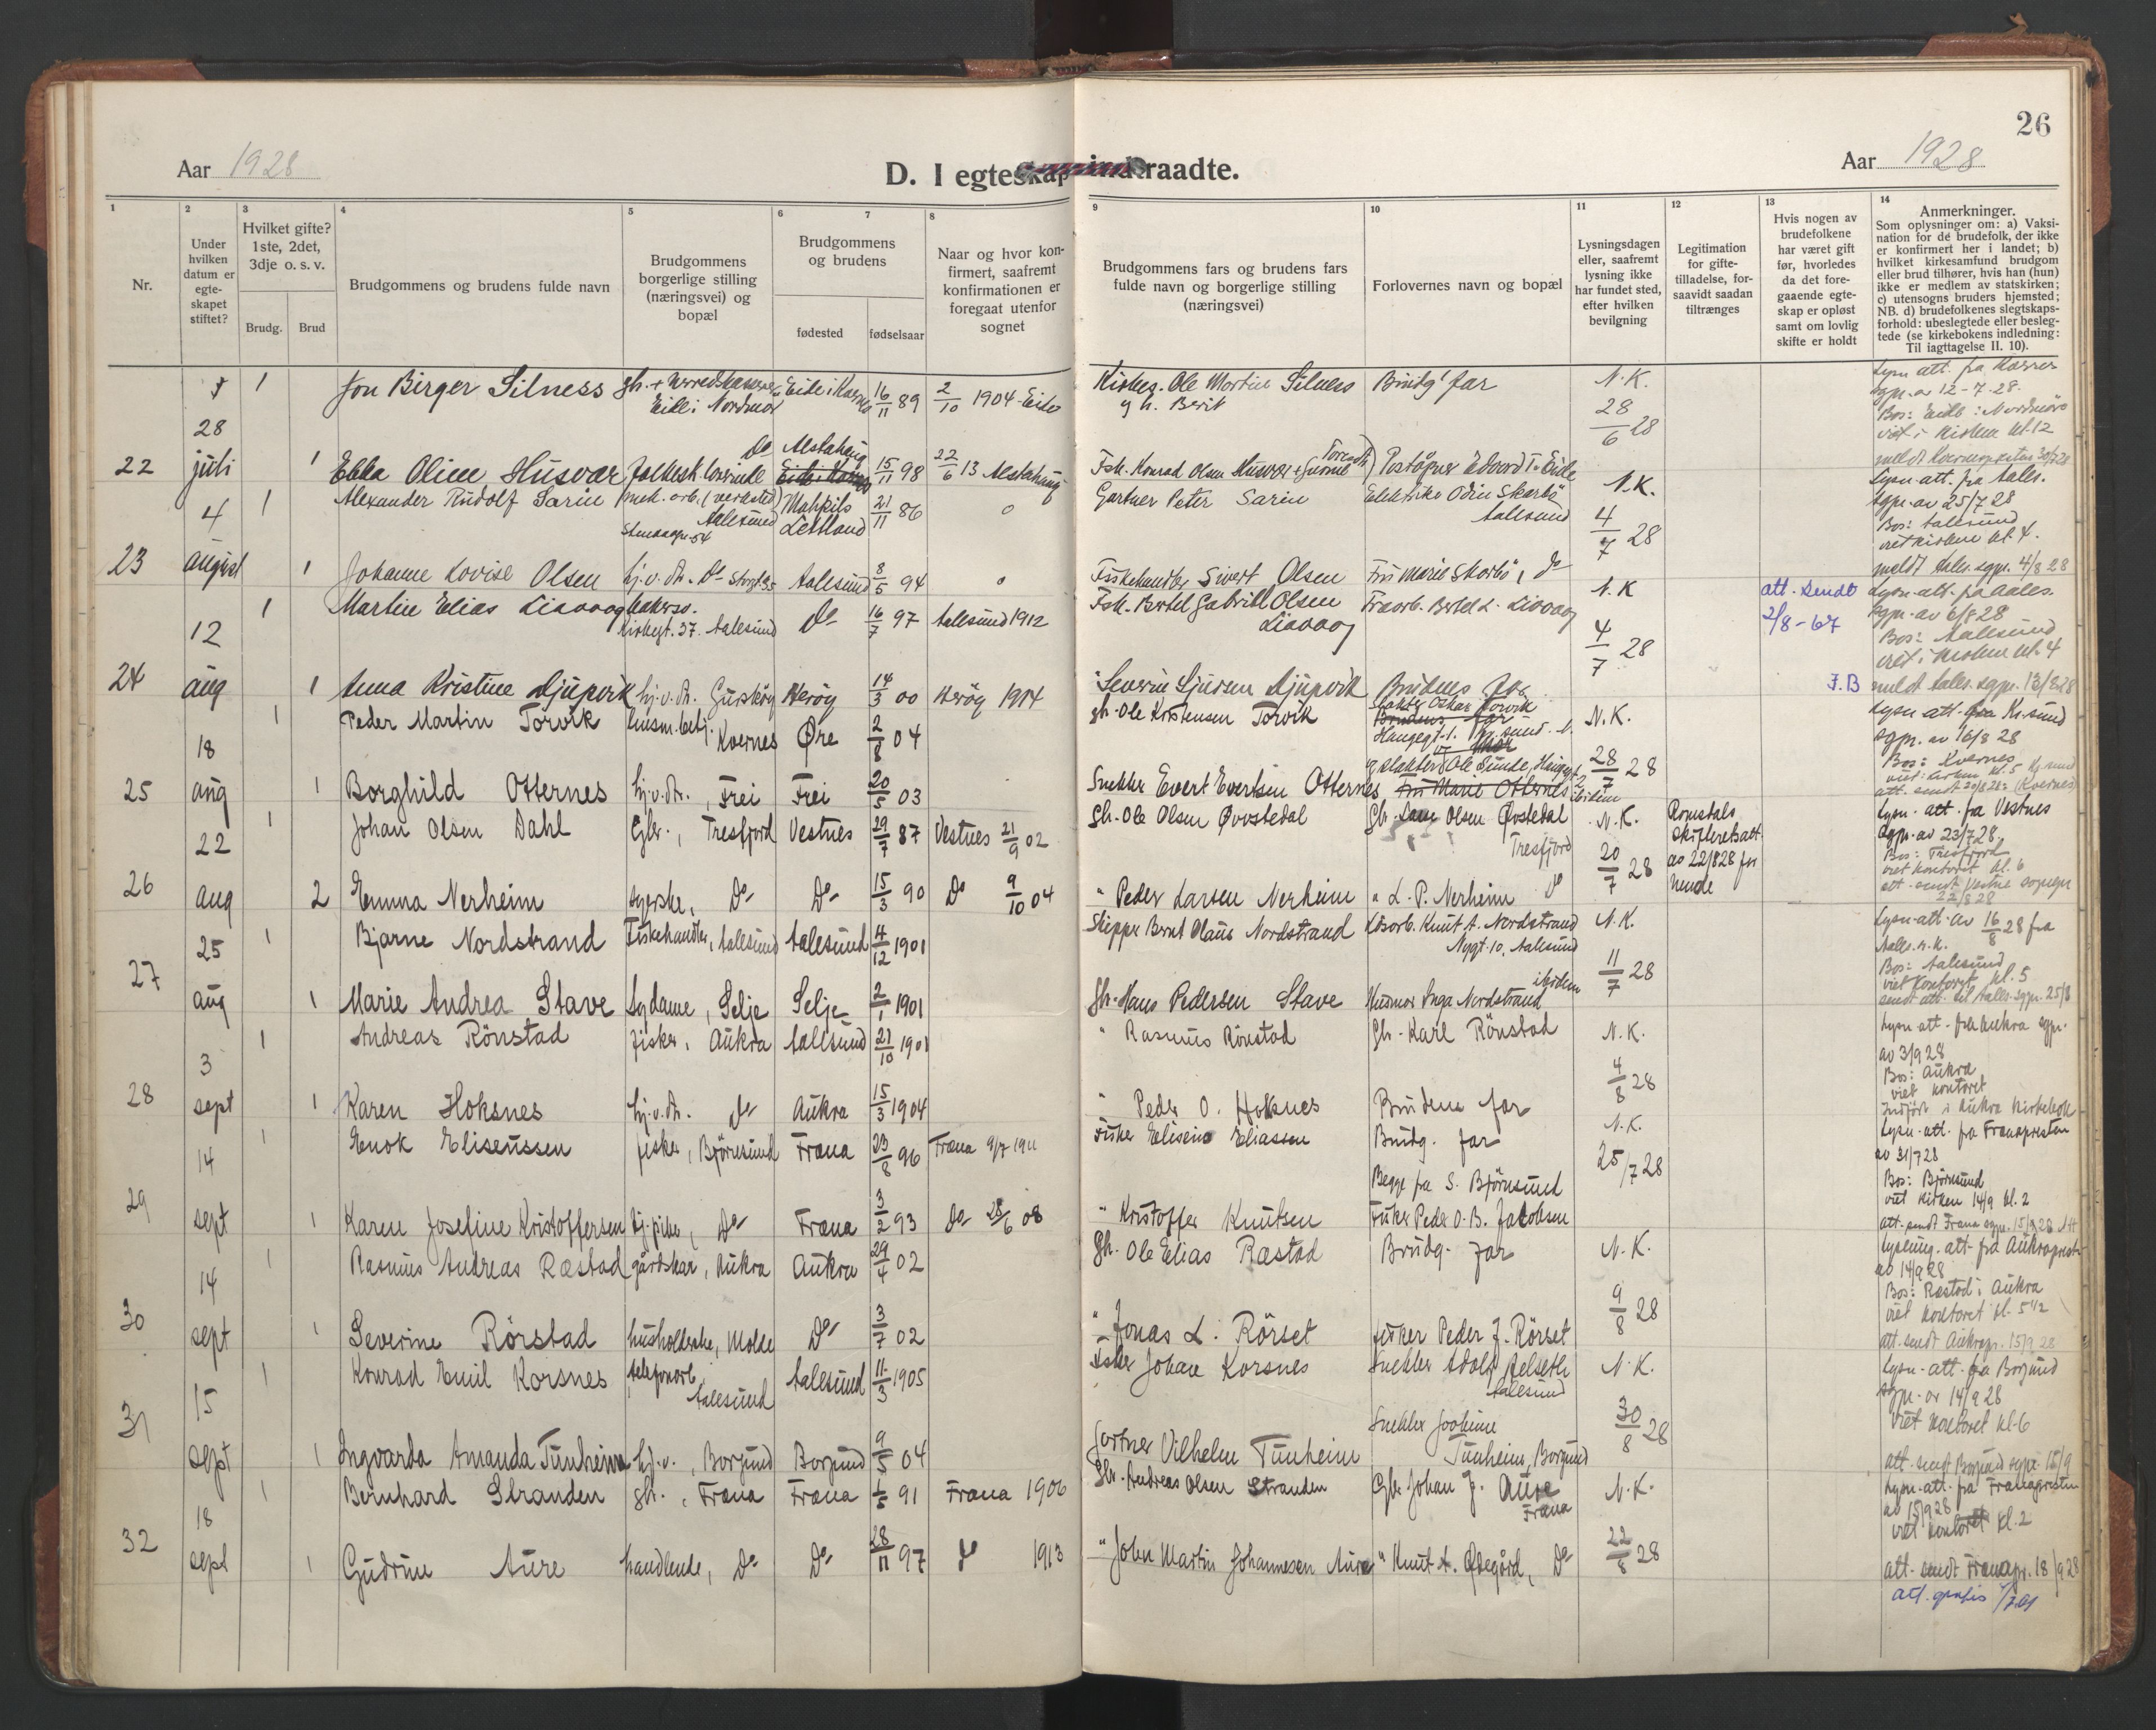 26
Aar 1928
D. I egteskap indtraadte.
Aar 1928
1 2 3 4 5 6 7 8 9 10 11 12 13 14
Nr.
Under hvilken datum er egte-skapet stiftet?
Hvilket gifte? 1ste, 2det, 3dje o. s. v.
Brudg. Brud
Brudgommens og brudens fulde navn
Brudgommens borgerlige stilling (næringsvei) og bopæl
Brudgommens og brudens
fødested fødselsaar
Naar og hvor kon-firmert, saafremt konfirmationen er foregaat utenfor sognet
Brudgommens fars og brudens fars fulde navn og borgerlige stilling (næringsvei)
Forlovernes navn og bopæl
Lysningsdagen eller, saafremt lysning ikke har fundet sted, efter hvilken bevilgning
Legitimation for gifte-tilladelse, for-saavidt saadan tiltrænges
Hvis nogen av brudefolkene har været gift før, hvorledes da det fore-gaaende egte-skap er opløst samt om lovlig skifte er holdt
Anmerkninger.
Som oplysninger om: a) Vaksi-nation for de brudefolk, der ikke er konfirmert her i landet; b) hvilket kirkesamfund brudgom eller brud tilhører, hvis han (hun) ikke er medlem av statskirken; c) utensogns bruders hjemsted; NB. d) brudefolkenes slegtskaps-forhold: ubeslegtede eller besleg-tede (se kirkebokens indledning: Til iagttagelse II. 10).
1 Jon Birger Silness gbr. + herredskasserer Eide i Nordmør Eide i Kvernes 16/11 89 2/10 1904 Eide Kirkes. Ole Martin Silness og h. Berit Brudg' far N.K. 28/6 28
Lysn att. fra Kvernes sgpr. av 12-7-28.
Bos: Eide i Nordmøre
viet i kirken kl. 12
22 28 juli 1 Ebba Oline Husvær folkesk.lærerinde Do Alstahaug Eide i Kvernes 15/11 98 22/6 13 Alstahaug Fisk. Konrad Olsen Husvær Poståpner Edvard T. Eide
4 1 Alexander Rudolf Sarin mek. arb. (verksted) Aalesund Storgt 54 Lettland 21/11 86 o Gartner Peter Sarin Elektriker Odin Skarbö Aalesund N.K. 4/7 28
Lysn. att. fra Aales. sgpr. av 25/7 28
Bos: Aalesund
viet kirken kl. 4.
meldt Ales. sgpr. 4/8 28
23 august 1 Johanne Lovise Olsen hj.v.dr. Do Storgt. 35 Aalesund 8/5 94 o Fiskehandler Sivert Olsen Fru Marie Skarbö, do
1 Martin Elias Liavaag bakersv. Kirkegt. 37. Aalesund Do 16/7 97 Aalesund 1912 Fisk. Bertel Gabriel Olsen Liavaag Fra arb. Bertel L. Liavaag N.K. 4/7 28 att. sendt 2/8-67 F.B
Lysn. att. fra Aales. sgpr. av 6/8 28
Bos: Aalesund
viet i kirken kl. 4
meldt Aales. sgpr. 13/8 28
24 12 aug 1 Anna Kristine Djupvik hj.v.dr. Gurskøy Herøy 14/3 00 Herøy 1914 Severin Sjursen Djupvik Brudens far
1 Peder Martin Torvik husm.bestj. Kvernes Øre 2/8 04 gbr. Ole Kristensen Torvik Slakter Oskar Torvik N.K. 28/7 28
Lysn att. fra Kr.sund sgpr. av 16/8 28
Bos: Kvernes
25 18 aug 1 Borghild Otternes hj.v.dr., Frei Frei 20/5 03 Snekker Evert Evertsen Otternes Fru Marie Otternes ibidem
1 Johan Olsen Dahl Gbr., Tresfjord Vestnes 29/7 87 Vestnes 21/9 02 Gbr. Ole Olsen Øvstedal Gbr. Olsen Øvstedal Tresfjord N.K. 20/7 28 Romsdals skifteretsatt. av 22/8 28 for hende
Lysn. att. fra Vestnes sgpr. av 23/7 28.
Bos: Tresfjord
viet kontoret kl. 6
22/8 28
26 22 aug 2 Emma Nerheim syerske, Do Do 15/3 90 Do 9/10 04 " Peder Larsen Nerheim " L. P. Nerheim do
1 Bjarne Nordstrand Fiskehandler, Aalesund Aalesund 4/12 1901 Skipper Bernt Olaus Nordstrand Løsarb. Knut A. Nordstrand Nygt. 10, Aalesund N.K. 11/7 28
Lysn. att. av 16/8 28 fra Aales. s.k.
Bos: Aalesund
viet kontoret kl. 5
sendt att. til Aales. sgpr. 25/8
27 25 aug 1 Marie Andrea Stave sydame, Selje Selje 2/1 1901 Gbr. Hans Pedersen Stave Husmor Inga Nordstrand ibidem
1 Andreas Rönstad fisker, Aukra Aalesund 21/10 1901 " Rasmus Rönstad Gbr. Karl Rönstad N.K. 4/8 28
Lysn. att. fra Aukra sgpr. av 3/9 28
Bos: Aukra
viet kontoret
Indført i Aukra kirkebok
28 3 sept 1 Karen Hoksnes hj.v.dr. do Aukra 15/3 1904 " Peder O. Hoksnes Brudens far
1 Enok Eliseussen fisker, Björnsund Fræna 23/8 96 Fræna 9/7 1911 Fisker Eliseus Eliassen Brudg. far N.K. 25/7 28
Begge fra S. Björnsund
Lysn. att. fra Frænapresten av 31/7 28
Bos: Björnsund
viet kirken 14/9 kl. 2
att. sendt Fræna sgpr. 15/9 28
29 14 sept 1 Karen Josefine Kristoffersen tj.pike, Do Fræna 3/2 93 do 28/6 08 " Kristoffer Knutsen Fisker Peder O. B. Jakobsen
1 Rasmus Andreas Ræstad gårdskar, Aukra Aukra 29/4 02 Gbr. Ole Elias Ræstad Brudg. far N.K. 9/8 28
Lysning. att. fra Aukrapresten av 14/9 28
Bos: Ræstad i Aukra
viet kontoret kl. 5 1/2
att. sendt Aukrapr. 15/9 28
30 14 sept 1 Severine Rörstad husholderske, Molde Do 3/7 02 " Jonas L. Rörset fisker Peder J. Rörset
1 Konrad Emil Korsnes telefonarb. Aalesund Aalesund 11/3 1905 Fisker Johan Korsnes Snekker Adolf Relseth Aalesund N.K. 30/8 28
Lysn. att. fra Borgund sgpr. av 14/9 28
viet kontoret kl. 6
att. sendt Borgund sgpr. 15/9
31 15 sept 1 Ingvarda Amanda Tunheim hj.v., Borgund Borgund 9/5 04 Gartner Vilhelm Tunheim Snekker Joakim Tunheim, Borgund
1 Bernhard Stranden gbr., Fræna Fræna 1/5 91 Fræna 1906 Gbr. Andreas Olsen Stranden Gbr Johan J. Aure Fræna N.K. 22/8 28
Lysn. att. fra Frænapresten av 15/9 28
viet kontoret kl. 2
32 18 sept 1 Gudrun Aure handlende, Do Do 28/11 97 do 1913 " John Martin Johannesen Aure " Knut A. Ødegård, Do
att. sendt Frænapr. 18/9 28
att. gratis